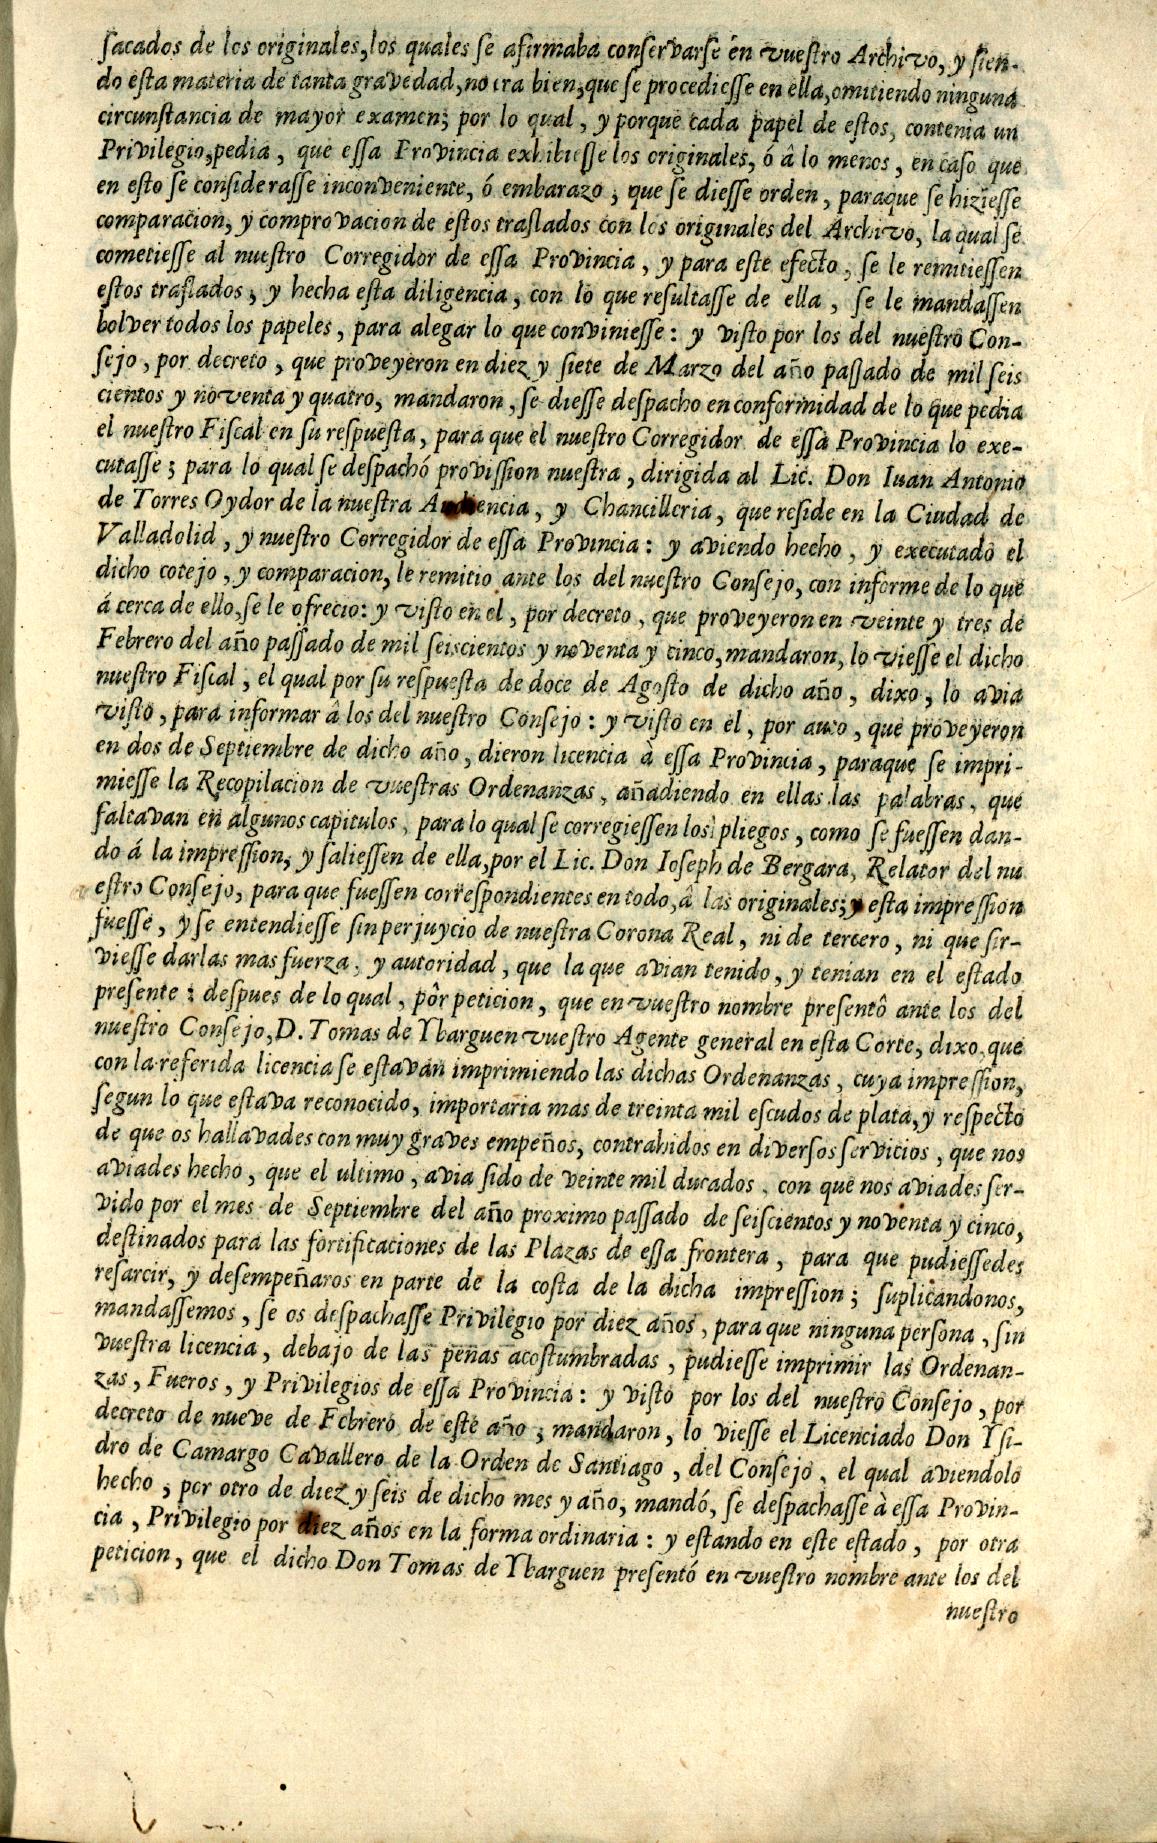 sacados de los originales, los quales se afirmaba conservarse en vuestro Archivo, y sien-
do esta materia de tanta gravedad, no era bien, que se procediesse en ella, omitiendo ninguna
circunstancia de mayor examen; por lo qual, y porque cada papel de estos, contenia un
Privilegio, pedia, que essa Provincia exhibiesse los originales, ó â lo menos, en caso que
en esto se considerasse inconveniente, ó embarazo, que se diesse orden, paraque se hiziesse
comparacion, y comprovacion de estos traslados con los originales del Archivo, la qual se
cometiesse al nuestro Corregidor de essa Provincia, y para este efecto, se le remitiessen
estos traslados, y hecha esta diligencia, con lo que resultasse de ella, se le mandassen
bolver todos los papeles, para alegar lo que conviniesse: y visto por los del nuestro Con-
sejo, por decreto, que proveyeron en diez y siete de Marzo del año passado de mil seis
cientos y noventa y quatro, mandaron, se diesse despacho en conformidad de lo que pedia
el nuestro Fiscal en su respuesta, para que el nuestro Corregidor de essa Provincia lo exe-
cutasse; para lo qual se despachó provission nuestra, dirigida al Lic. Don Iuan Antonio
de Torres Oydor de la nuestra Audiencia, y Chancilleria, que reside en la Ciudad de
Valladolid, y nuestro Corregidor de essa Provincia: y aviendo hecho, y executado el
dicho cotejo, y comparacion, le remitio ante los del nuestro Consejo, con informe de lo que
á cerca de ello, se le ofrecio: y visto en el, por decreto, que proveyeron en veinte y tres de
Febrero del año passado de mil seiscientos y noventa y cinco, mandaron, lo viesse el dicho
nuestro Fiscal, el qual por su respuesta de doce de Agosto de dicho año, dixo, lo avia
visto, para informar â los del nuestro Consejo: y visto en el, por auto, que proveyeron
en dos de Septiembre de dicho año, dieron licencia à essa Provincia, paraque se impri-
miesse la Recopilacion de vuestras Ordenanzas, añadiendo en ellas las palabras, que
faltavan en algunos capitulos, para lo qual se corregiessen los pliegos, como se fuessen dan-
do á la impression, y saliessen de ella, por el Lic. Don Ioseph de Bergara, Relator del nu
estro Consejo, para que fuessen correspondientes en todo, â las originales; y esta impression
fuesse, y se entendiesse sin perjuycio de nuestra Corona Real, ni de tercero, ni que sir-
viesse darlas mas fuerza, y autoridad, que la que avian tenido, y tenian en el estado
presente: despues de lo qual, pôr peticion, que en vuestro nombre presentô ante los del
nuestro Consejo, D. Tomas de Ybarguen vuestro Agente general en esta Corte, dixo, que
con la referida licencia se estavan imprimiendo las dichas Ordenanzas, cuya impression,
segun lo que estava reconocido, importaria mas de treinta mil escudos de plata, y respecto
de que os hallavades con muy graves empeños, contrahidos en diversos servicios, que nos
aviades hecho, que el ultimo, avia sido de veinte mil ducados, con que nos aviades ser-
vido por el mes de Septiembre del año proximo passado de seiscientos y noventa y cinco,
destinados para las fortificaciones de las Plazas de essa frontera, para que pudiessedes
resarcir, y desempeñaros en parte de la costa de la dicha impression; suplicandonos,
mandassemos, se os despachasse Privilegio por diez años, para que ninguna persona, sin
vuestra licencia, debajo de las penas acostumbradas, pudiesse imprimir las Ordenan-
zas, Fueros, y Privilegios de essa Provincia: y visto por los del nuestro Consejo, por
decreto de nueve de Febrero de este año, mandaron, lo viesse el Licenciado Don Ysi-
dro de Camargo Cavallero de la Orden de Santiago, del Consejo, el qual aviendolo
hecho, por otro de diez y seis de dicho mes y año, mandó, se despachasse à essa Provin-
cia, Privilegio por diez años en la forma ordinaria: y estando en este estado, por otra
peticion, que el dicho Don Tomas de Ybarguen presentó en vuestro nombre ante los del
nuestro